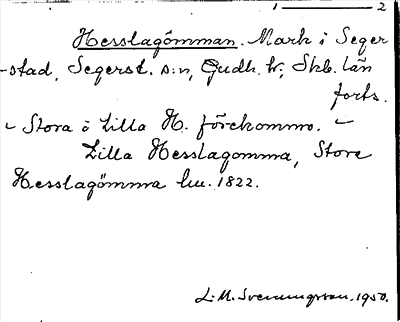 1 — 2
Hesslagömman. Mark i Seger
-stad, Segerst. s:n, Gudh. hr, Skb. län
forts.
- Stora o Lilla H. förekomma. -
Lilla Hesslagomma, Store
Hesslagömma lm. 1822.
L. M. Svenungsson. 1950.